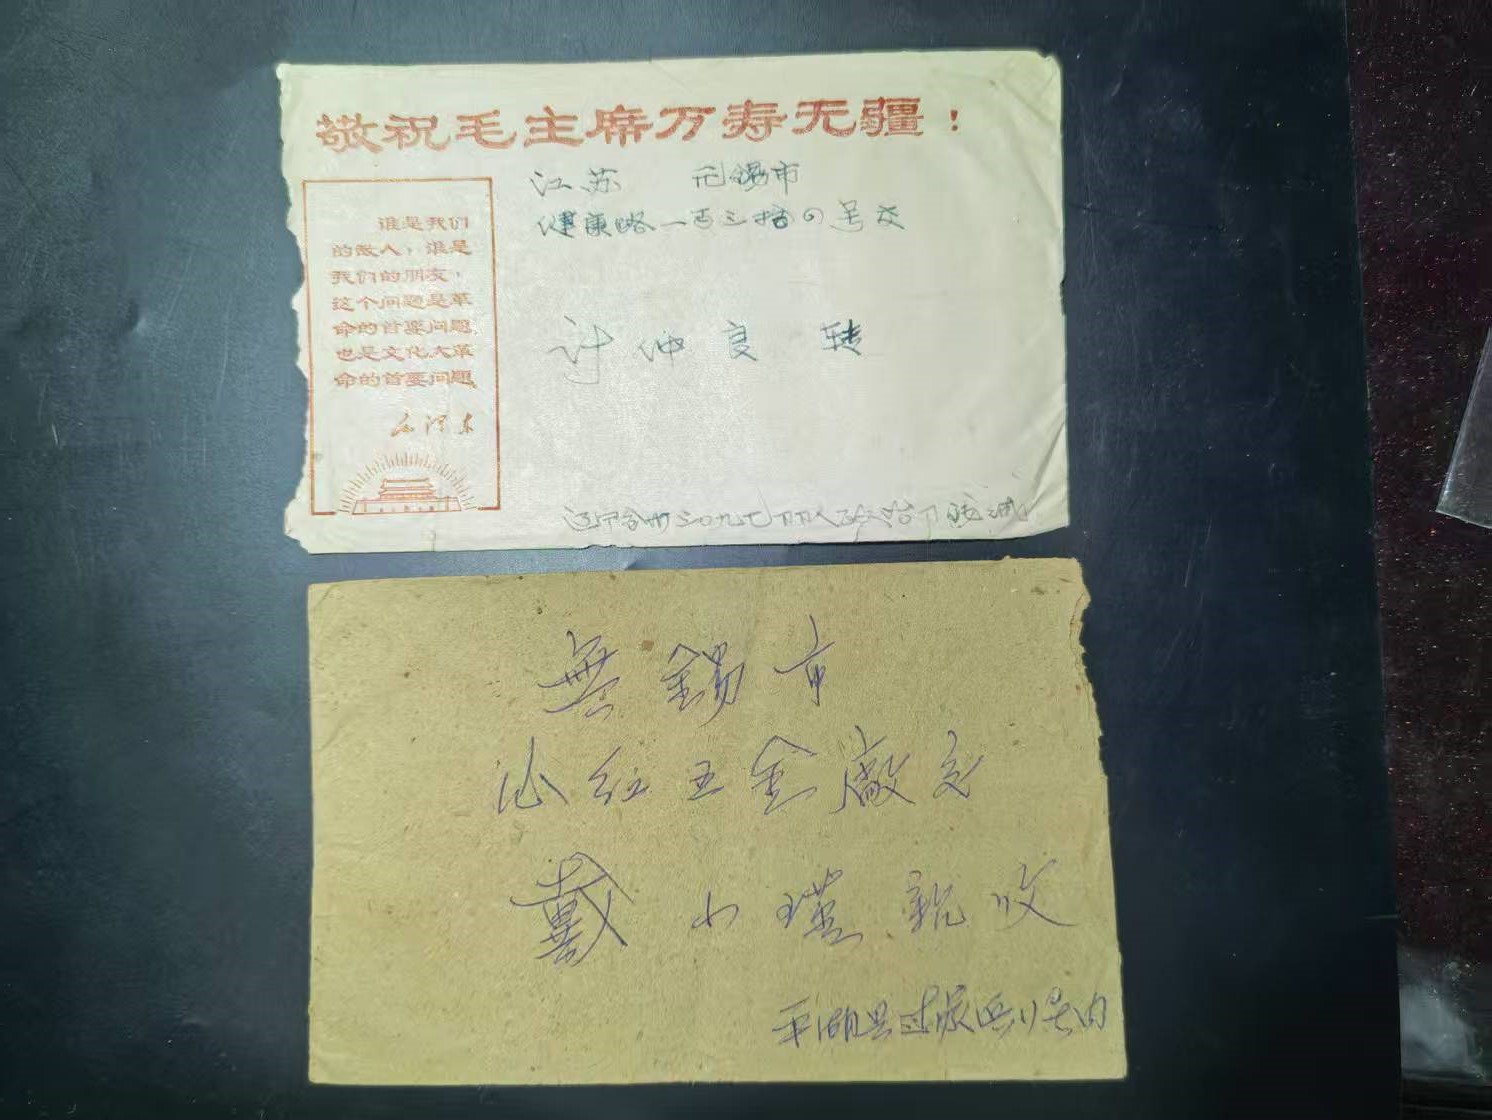 敬祝毛主席万寿无疆！
谁是我们
的敌人，谁是
我们的朋友，
这个问题是革
命的首要问题，
也是文化大革
命的首要问题。
毛泽东
江苏 无锡市
健康路一百三拾四号交
许仲良 转
辽宁台州三〇九七
無錫市
沁红五金廠交
戴小瑾親收
平湖县